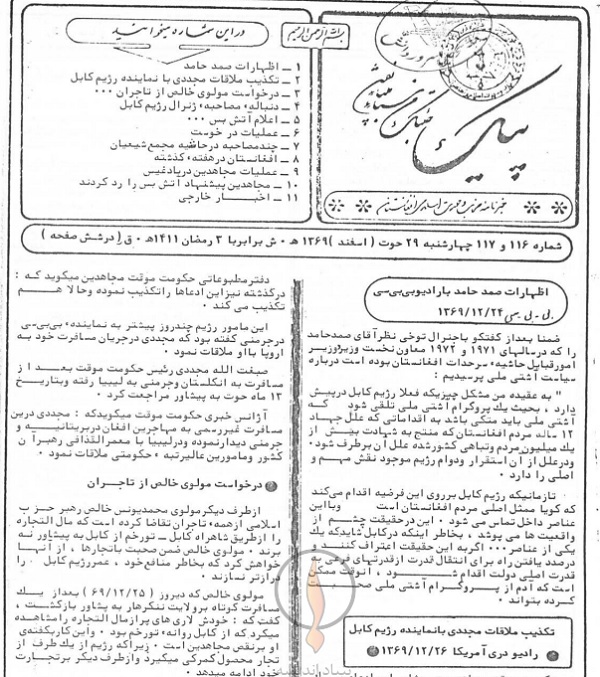 بسم الله الرحمن الرحیم
در این شماره میخوانید
۱ ــ اظهارات صمد حامد
۲ ــ تکذیب ملاقات مجددی با نماینده رژیم کابل
۳ ــ درخواست مولوی خالص از تاجران ۰۰۰
۴ ــ دنباله‌ء مصاحبه‌ء ژنرال رژیم کابل
۵ ــ اعلام آتش بس ۰۰۰
۶ ــ عملیات در خوست
۷ ــ چند مصاحبه در حاشیه مجمع شیعیان
۸ ــ افغانستان در هفته‌ء گذشته
۹ ــ عملیات مجاهدین در بادغیس
۱۰ ــ مجاهدین پیشنهاد آتش بس را رد کردند
۱۱ ــ اخبار خارجی
پیک
خبرنامه حزب وحدت اسلامی افغانستان
شماره ۱۱۶ و ۱۱۷ چهارشنبه ۲۹ حوت ( اسفند )۱۳۶۹ هـ ۰ ش برابر با ۳ رمضان ۱۴۱۱هـ ۰ ق (در شش صفحه )
اظهارات صمد حامد با رادیو بی بی سی
بی ـ بی ـ سی ۱۳۶۹/۱۲/۲۴
ضمنا بعد از گفتگو با جنرال توخی نظر آقای صمد حامد
را که در سالهای ۱۹۷۱ و ۱۹۷۲ معاون نخست وزیر و وزیر
امور قبایل حاشیه‌ء سرحدات افغانستان بوده است درباره
سیاست آشتی ملی پرسیدیم :
" به عقیده من مشکل چیزیکه فعلا رژیم کابل در پیش
دارد ، بحیث یک پروگرام آشتی ملی تلقی شود ۰ که
آشتی ملی باید متکی باشد به اقداماتی که علل جهاد
۱۲ ساله مردم افغانستان که منتج به شهادت بیش از
یک میلیون مردم و تباهی کشور شده علل آن برطرف شود ۰
و در علل از آن استقرار و دوام رژیم موجود نقش مهم و
اصلی را دارد ۰
تا زمانیکه رژیم کابل بر روی این فرضیه اقدام می‌کند
که گویا ممثل اصلی مردم افغانستان است و با این
عناصر داخل تماس می شود ۰ این در حقیقت چشم از
واقعیت ها می پوشد ، بخاطر اینکه در کابل شاید که یک
یکی از عناصر ۰۰۰ اگر به این حقیقت اعتراف کنند و
در صدد یافتن راه برای انتقال قدرت از قدرتهای فرعی به
قدرت اصلی دولت اقدام شود ، آنوقت ممکن
است که آدم از پروگرام آشتی ملی صحبت
کرده بتواند ۰
تکذیب ملاقات مجددی با نماینده رژیم کابل
رادیو دری آمریکا ۱۳۶۹/۱۲/۲۶
دفتر مطبوعاتی حکومت موقت مجاهدین میگوید که :
در گذشته نیز این ادعاها را تکذیب نموده و حالا هم
تکذیب می کند ۰
این مامور رژیم چند روز پیشتر به نماینده‌ء بی‌بی‌سی
در جرمنی گفته بود که مجددی در جریان مسافرت خود به
اروپا با او ملاقات نمود ۰
صبغت الله مجددی رئیس حکومت موقت بعد از
مسافرت به انگلستان و جرمنی به لیبیا رفته و بتاریخ
۱۳ ماه حوت به پیشاور مراجعت کرد ۰
آژانس خبری حکومت موقت میگوید که : مجددی در این
مسافرت غیر رسمی به مهاجرین افغان در بریتانیه و
جرمنی دیدار نموده و در لیبیا با معمر القذافی رهبر آن
کشور و مامورین عالیرتبه‌ء حکومتی ملاقات نمود ۰
درخواست مولوی خالص از تاجران
از طرف دیگر مولوی محمد یونس خالص رهبر حزب
اسلامی از همه‌ء تاجران تقاضا کرده است که مال التجاره
را از طریق شاهراه کابل ـ تورخم از کابل به پیشاور نه
برند ۰ مولوی خالص ضمن صحبت با تاجرها ، از آنها
خواهش کرد که بخاطر منافع خود ، عمر رژیم کابل را
دراز تر نسازند ۰
مولوی خالص که دیروز ( ۶۹/۱۲/۲۵ ) بعد از یک
مسافرت کوتاه بر ولایت ننگرهار به پشاور بازگشت ،
گفت که : خودش لاری های پر از مال التجاره را مشاهده
میکرد که از کابل روانه‌ء تورخم بود ۰ و این کار بگفته‌ی
او بر نقص مجاهدین است ۰ زیرا که رژیم از یک طرف از
تجار محصول گمرکی میگیرد و از طرف دیگر بر تجارت
خود ادامه میدهد ۰
بنیاد اندیشه